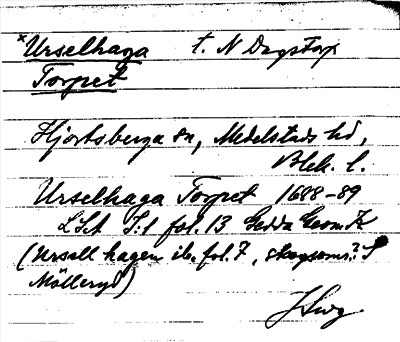 *Urselhaga t. N Dagstorp
Torpet
Hjortsberga sn, Medelstads hd,
Blek. l.
Urselhaga Torpet 1688-89
LSA I:1 fol. 13 Gedda Geom. K
(Ursell hagen ib. fol. 7, skogsomr.? S
Mölleryd)